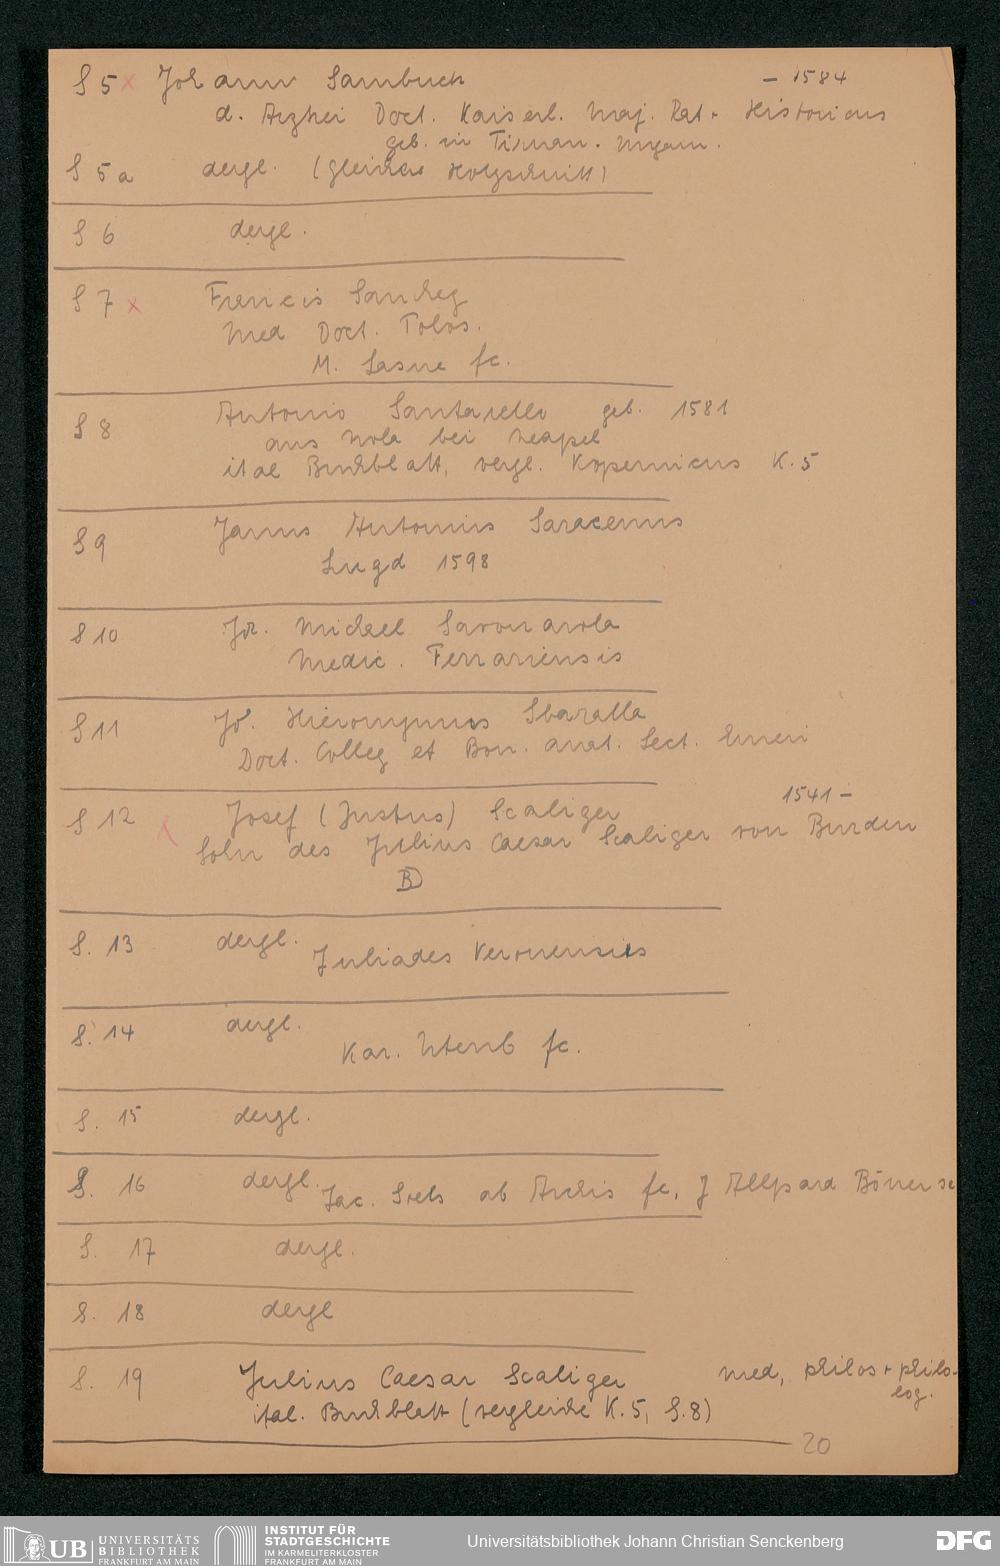 S 5 x Johann Sambuch – 1584
d. Arznei Doct. Kaiserl. Maj. Rat + Historicus
geb. in Tirnau. Ungarn.
S 5a dergl. (gleicher Holzschnitt)
S 6 dergl.
S 7 x Francis Sanchez
Med Doct. Tolos.
M. Lasne fc.
S 8 Antonio Santarello geb. 1581
aus Nola bei Neapel
ital Buchblatt, vergl. Kopernicus K. 5
S 9 Janus Antonius Saracenus
Lugd 1598
S 10 Jh. Michael Savonarola
Medic. Ferrariensis
S 11 Jo. Hieronymus Sbaralla
Doct. Colleg et Bon. anat. Lect. Emeri
S 12 Josef (Justus) Scaliger 1541 –
Sohn des Julius Caesar Scaliger von Burden
B
S. 13 dergl. Juliades Veronensis
S. 14 dergl.
Kar. fc.
S. 15 dergl.
S. 16 dergl. Jac. ab fc, J Böner
S. 17 dergl.
S. 18 dergl
S. 19 Julius Caesar Scaliger med, philos + philo-
log.
ital. Buchblatt (vergleiche K. 5, S. 8)
20
UB UNIVERSITÄTS
BIBLIOTHEK
FRANKFURT AM MAIN
INSTITUT FÜR
STADTGESCHICHTE
IM KARMELITERKLOSTER
FRANKFURT AM MAIN
Universitätsbibliothek Johann Christian Senckenberg
DFG